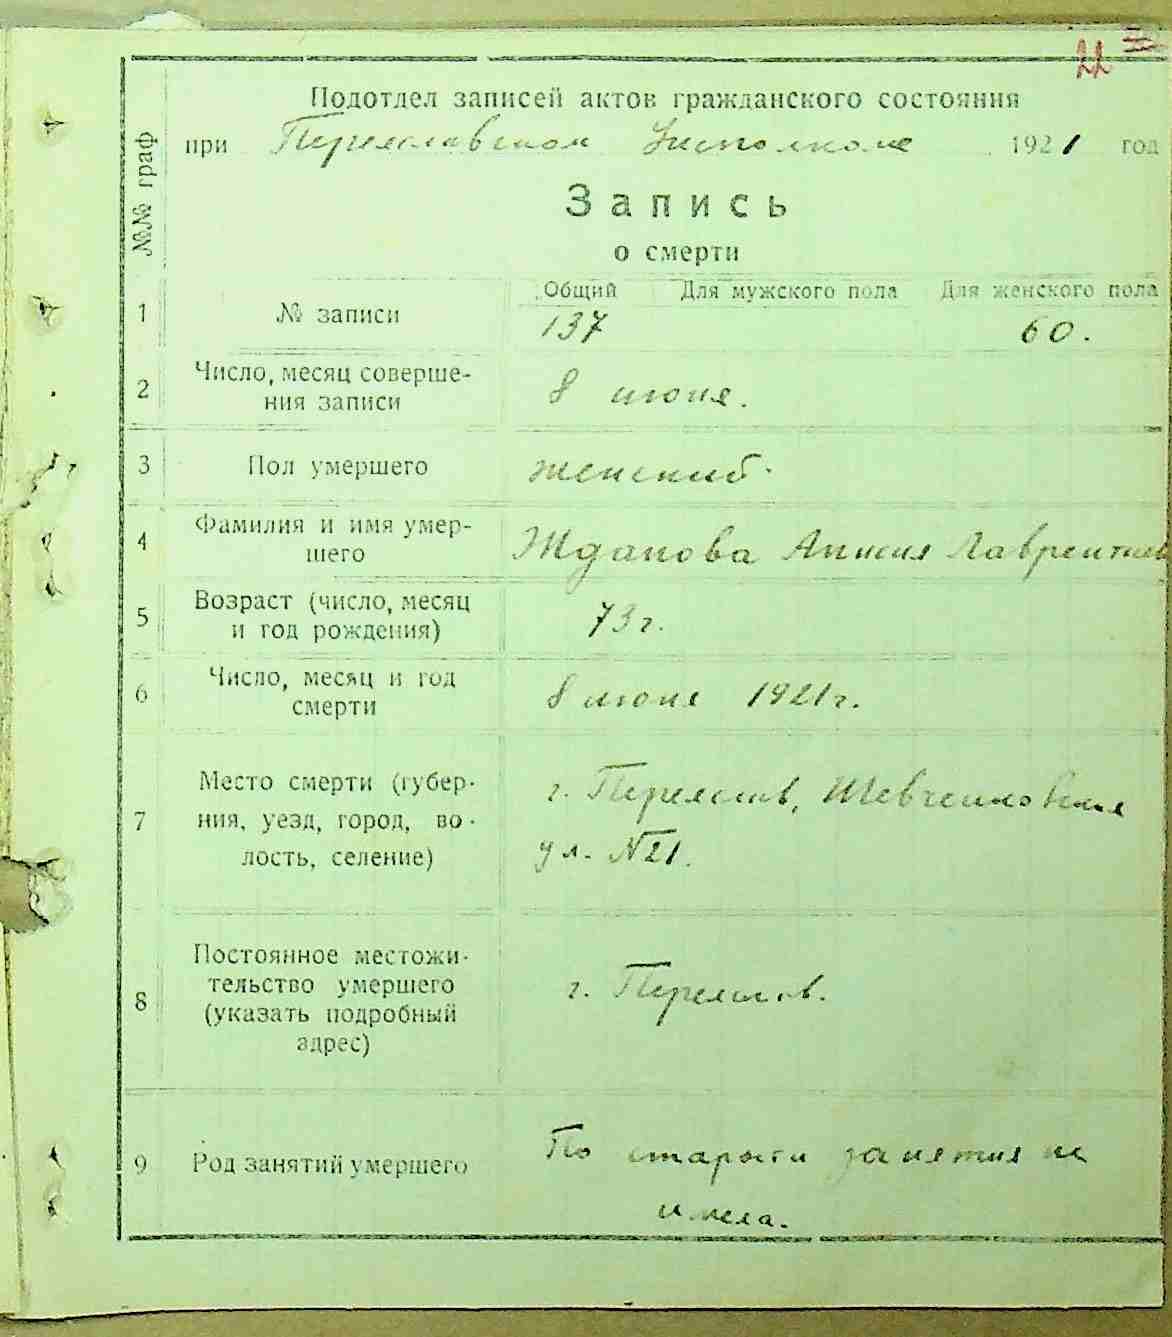 22
Подотдел записей актов гражданского состояния
при Переяславском Уисполкоме 1921 год
№№ граф
Запись
о смерти
1 № записи Общий Для мужского пола Для женского пола
137 60.
2 Число, месяц соверше-
ния записи
8 июня.
3 Пол умершего женский.
4 Фамилия и имя умер-
шего
Жданова Анисия Лаврентиев
5 Возраст (число, месяц
и год рождения)
73 г.
6 Число, месяц и год
смерти
8 июня 1921 г.
7 Место смерти (губер-
ния, уезд, город, во-
лость, селение)
г. Переяслав, Шевченковская
ул. №21.
8 Постоянное местожи-
тельство умершего
(указать подробный
адрес)
г. Переяслав.
9 Род занятий умершего
По старости занятия не
имела.